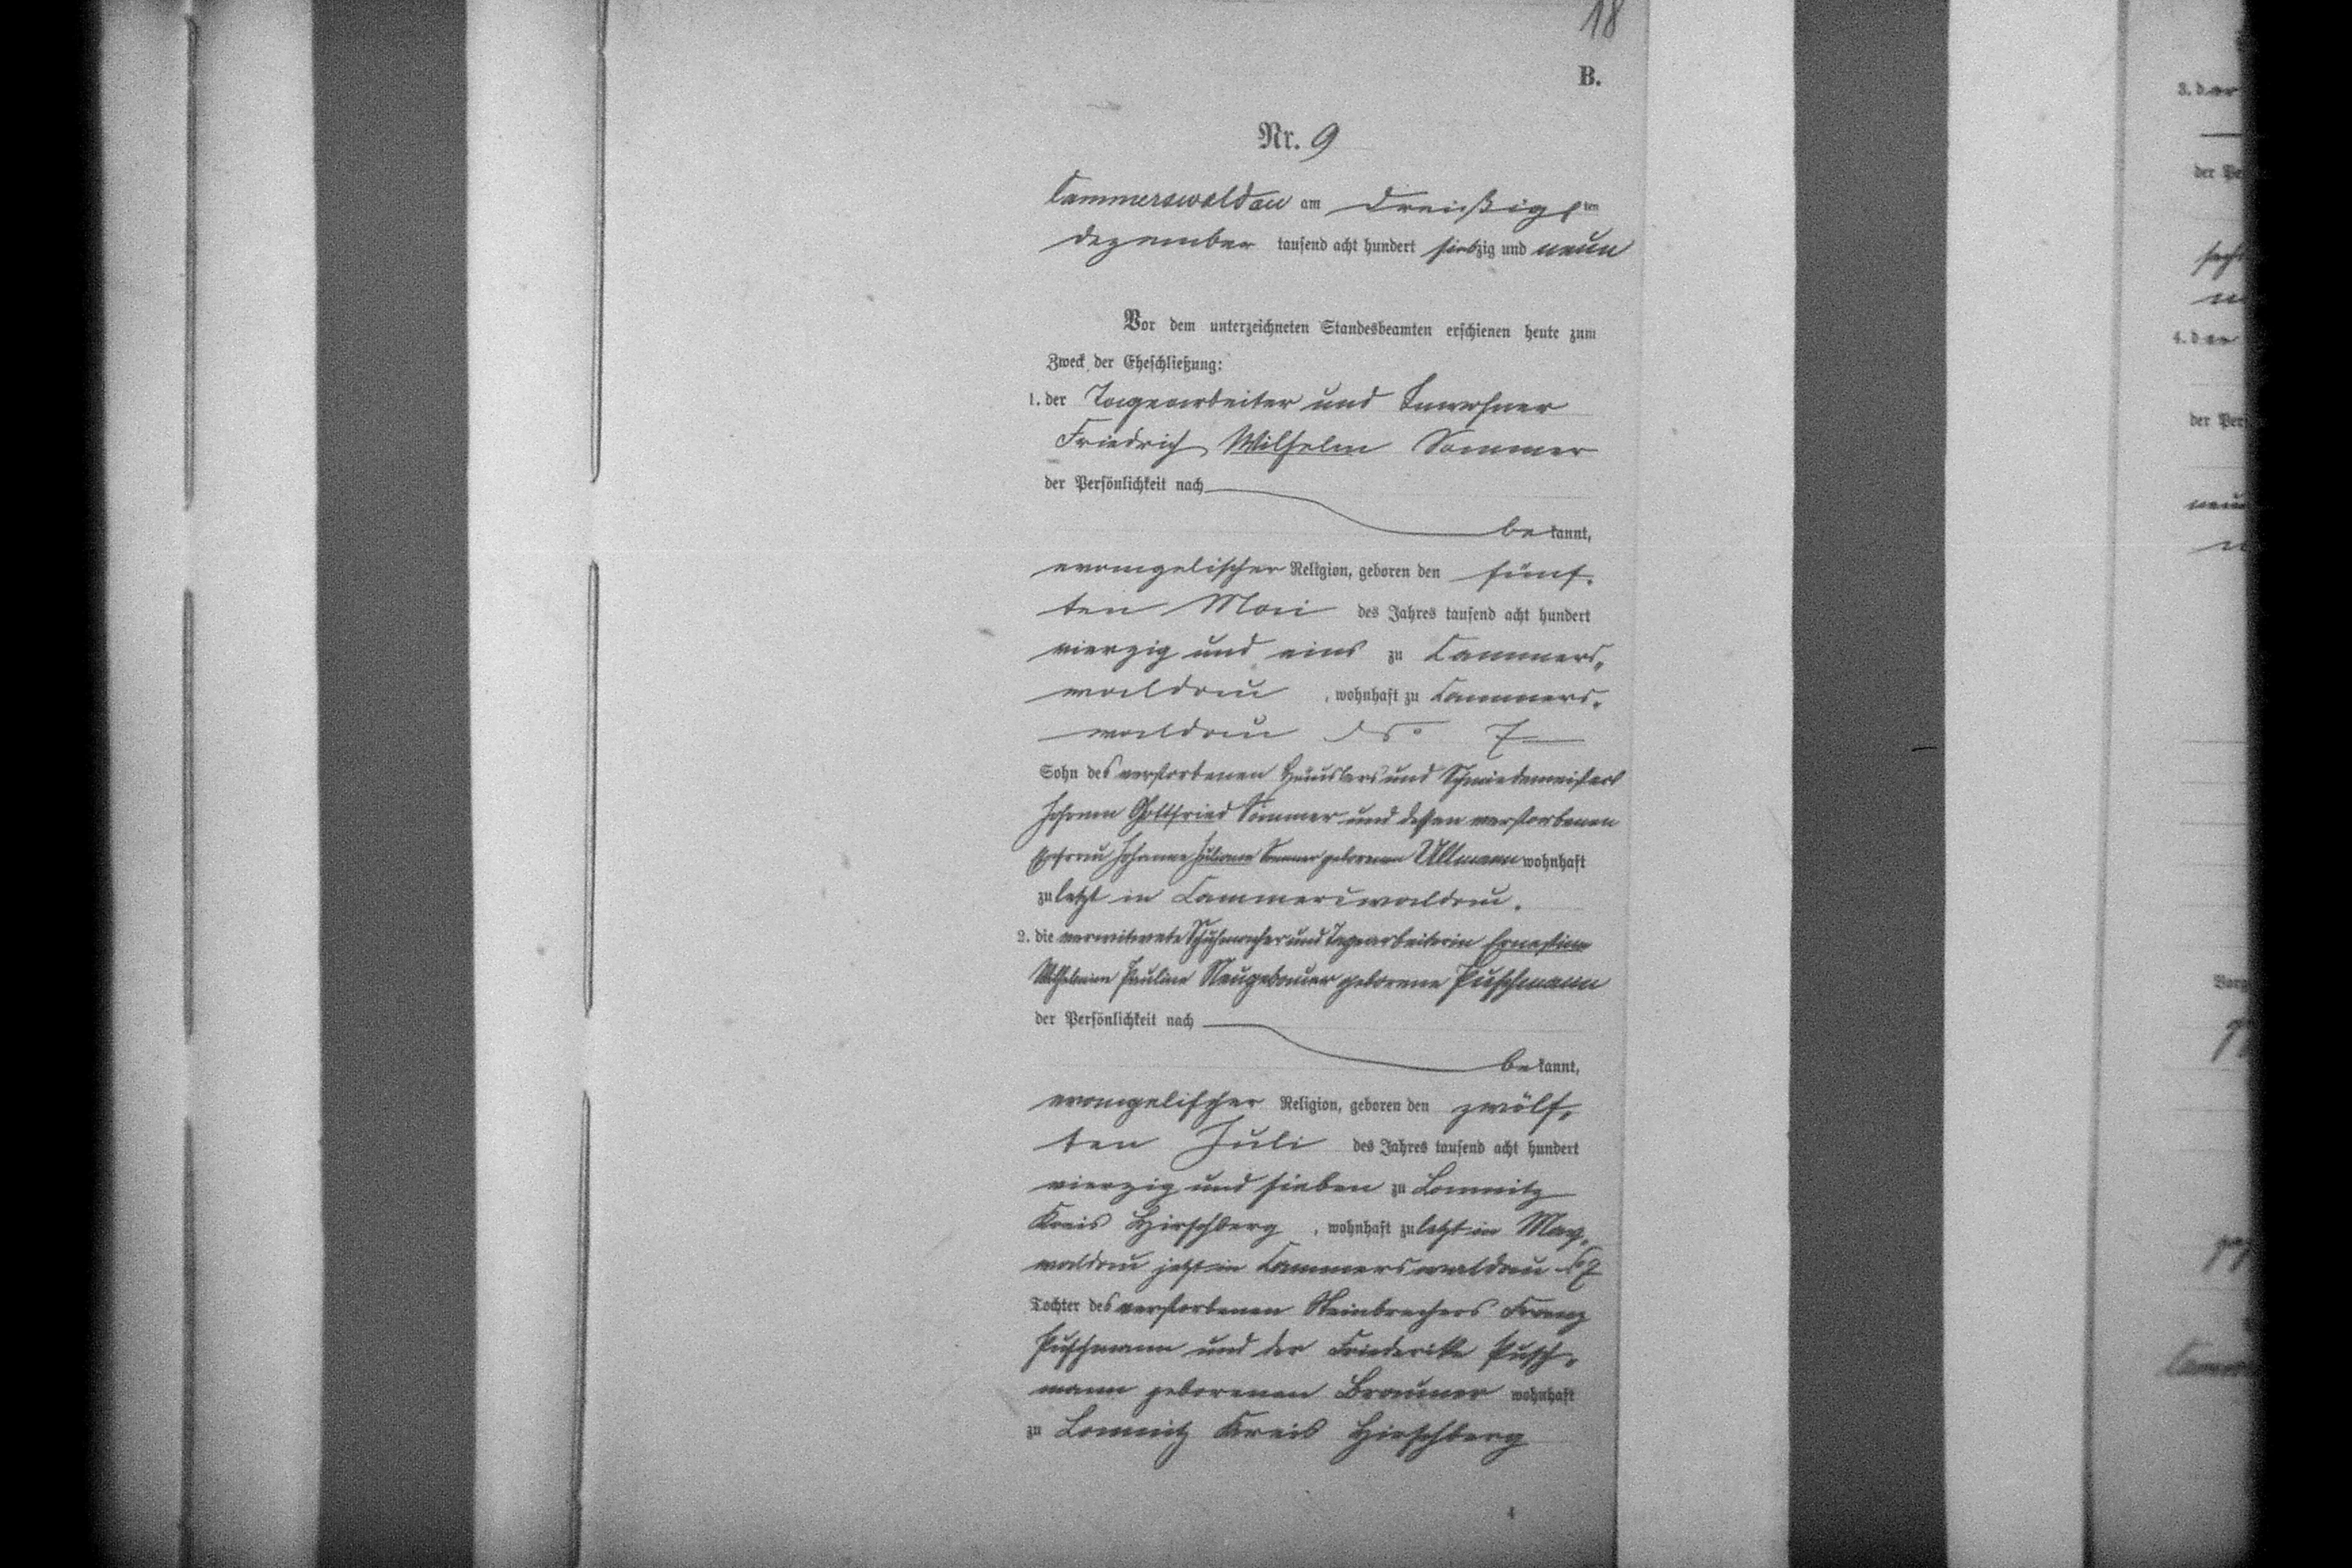 18
B.
Nr. 9
Cammerswaldau am dreißigsten
Dezember tausend acht hundert siebzig und neun
Vor dem unterzeichneten Standesbeamten erschienen heute zum
Zweck der Eheschließung:
1. der Tagearbeiter und Inwohner
Friedrich Wilhelm Sommer
der Persönlichkeit nach
bekannt,
evangelischer Religion, geboren den fünf-
ten Mai des Jahres tausend acht hundert
vierzig und eins zu Cammers-
waldau, wohnhaft zu Cammers-
waldau No 7
Sohn des verstorbenen Häuslers und Schmiedemeisters
Johann Gottfried Sommer und dessen verstorbenen
Ehefrau Johanne Juliane Sommer geborenen Ullmann wohnhaft
zuletzt in Cammerswaldau.
2. die verwitwete Schuhmacher und Tagearbeiterin Ernestine
Wilhelmine Pauline Neugebauer geborene Puschmann
der Persönlichkeit nach
bekannt,
evangelischer Religion, geboren den zwölf-
ten Juli des Jahres tausend acht hundert
vierzig und sieben zu Lomnitz
Kreis Hirschberg, wohnhaft zuletzt in May-
waldau jetzt in Cammerswaldau No 7
Tochter des verstorbenen Steinbrechers Franz
Puschmann und der Friederike Pusch-
mann geborenen Brauner wohnhaft
zu Lomnitz Kreis Hirschberg
4
3. der
der Pe
4. der
der Per
neun